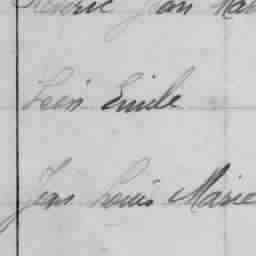 Jean Mar
Léon Emile
Jean Louis Marie